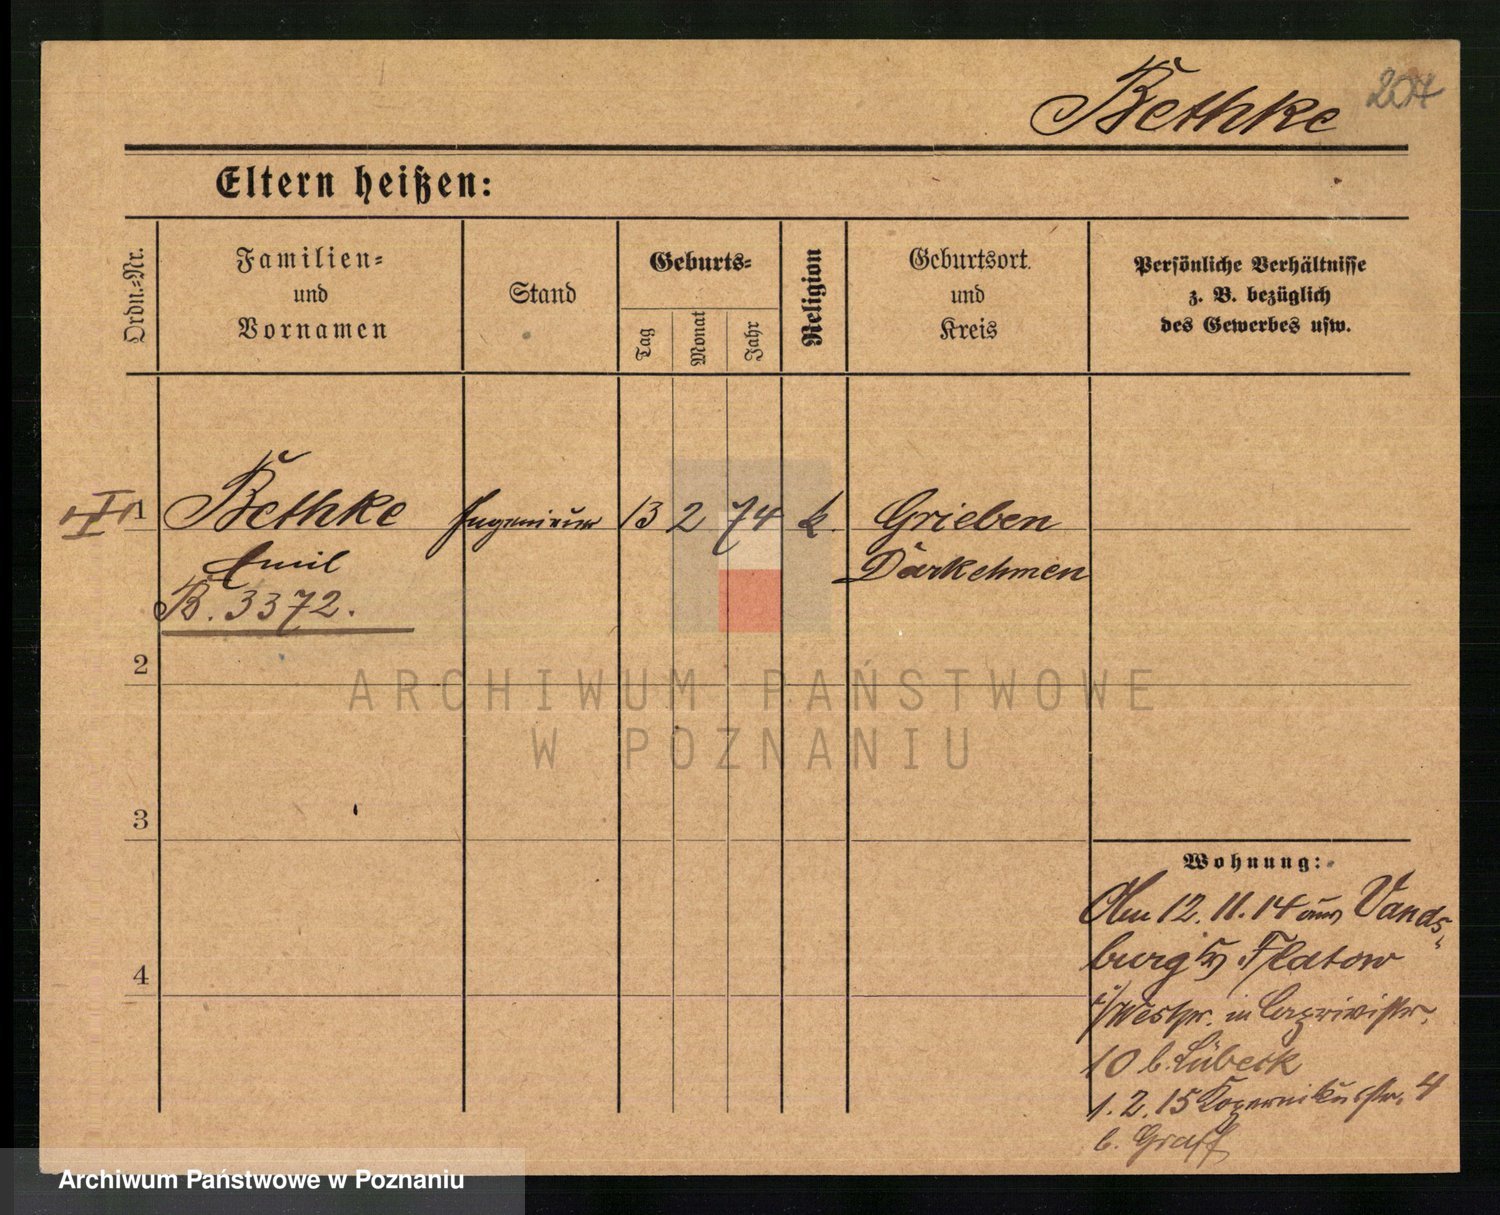 Bethke 204
Eltern heißen:
Ordn.-Nr.
Familien-
und
Vornamen
Stand
Geburts-
Tag
Monat
Jahr
Religion
Geburtsort
und
Kreis
Persönliche Verhältnisse
z. B. bezüglich
des Gewerbes usw.
1 Bethke Ingenieur 13 2 74 k. Grieben
Emil Darkehmen
B. 3372.
2
ARCHIWUM PAŃSTWOWE
W POZNANIU
3
Wohnung:
Am 12.11.14 aus Vands-
burg Kr Flatow
i/Westpr. in Caprivistr.
10 b. Lübeck
4
1.2.15 Kopernikusstr. 4
b. Graff
Archiwum Państwowe w Poznaniu